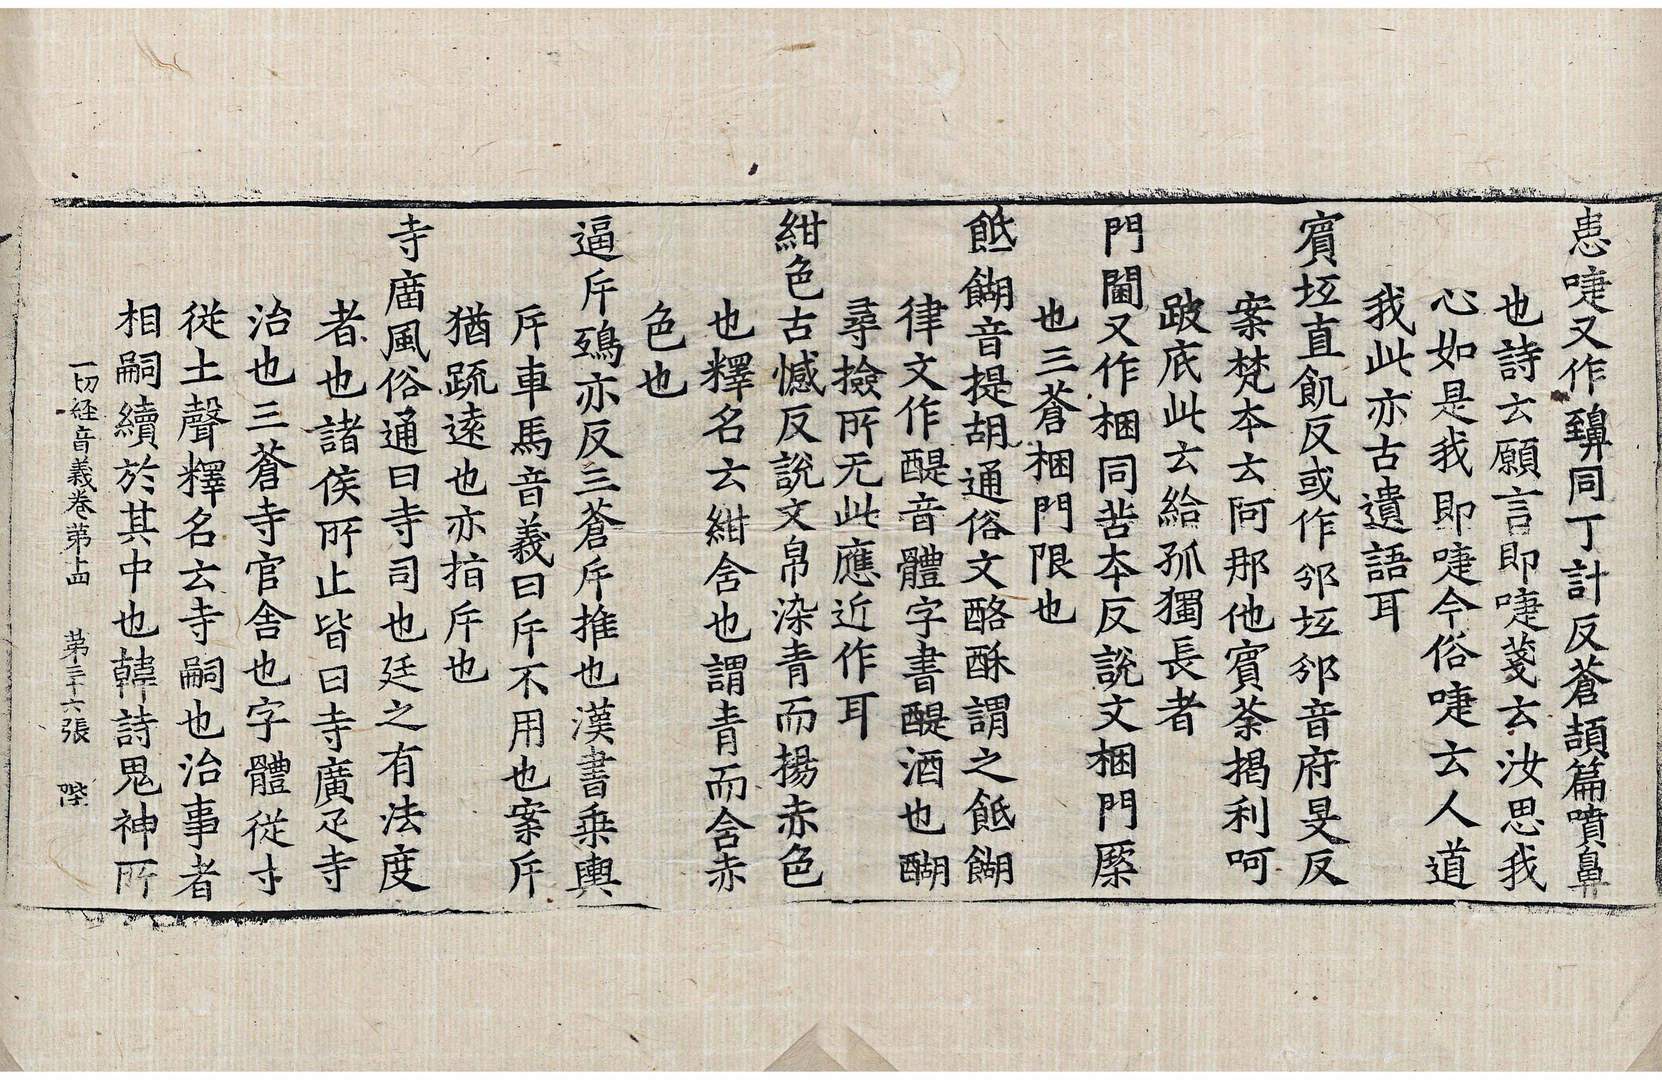 恚㖷又作𪖦同丁計反蒼頡篇噴鼻
也詩云願言即㖷箋云汝思我
心如是我即㖷今俗㖷云人道
我此亦古遺語耳
賓坻直飢反或作邠坻邠音府旻反
案梵夲云阿那他賓荼揭利呵
跛底此云給孤獨長者
門閫又作梱同苦夲反說文梱門橜
也三蒼梱門限也
䬫餬音提胡通俗文酪酥謂之䬫餬
律文作醍音體字書醍酒也醐
尋撿所无此應近作耳
紺色古憾反說文帛染青而揚赤色
也釋名云紺含也謂青而含赤
色也
逼斥鵄亦反三蒼斥推也漢書乗輿
斥車馬音義曰斥不用也案斥
猶疏遠也亦指斥也
寺庿風俗通曰寺司也廷之有法度
者也諸侯所止皆曰寺廣疋寺
治也三蒼寺官舍也字體從寸
從土聲釋名云寺嗣也治事者
相嗣續於其中也韓詩鬼神所
一切経音義卷第十四　第三十六張　陛